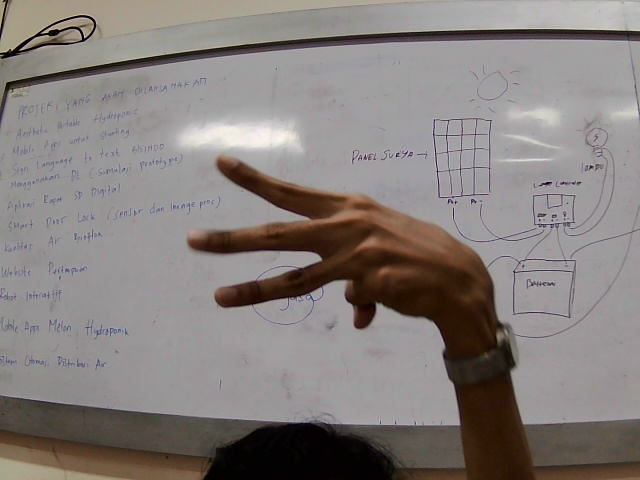 PROJEK YANG AKAN DILAKSANAKAN
Aesthetic Portable Hydroponic
Mobile Apps untuk Stunting
Sign Language to text BISINDO
Menggunakan DL (Simulasi prototype)
Aplikasi Rapor SD Digital
Smart Door Lock (sensor dan image proc)
Kualitas Air Bioflok
Website
Robot Interaktif
Mobile Apps Melon Hydroponik
Sistem Otomasi Distribusi Air
PANEL SURYA →
LAMPU
Baterai